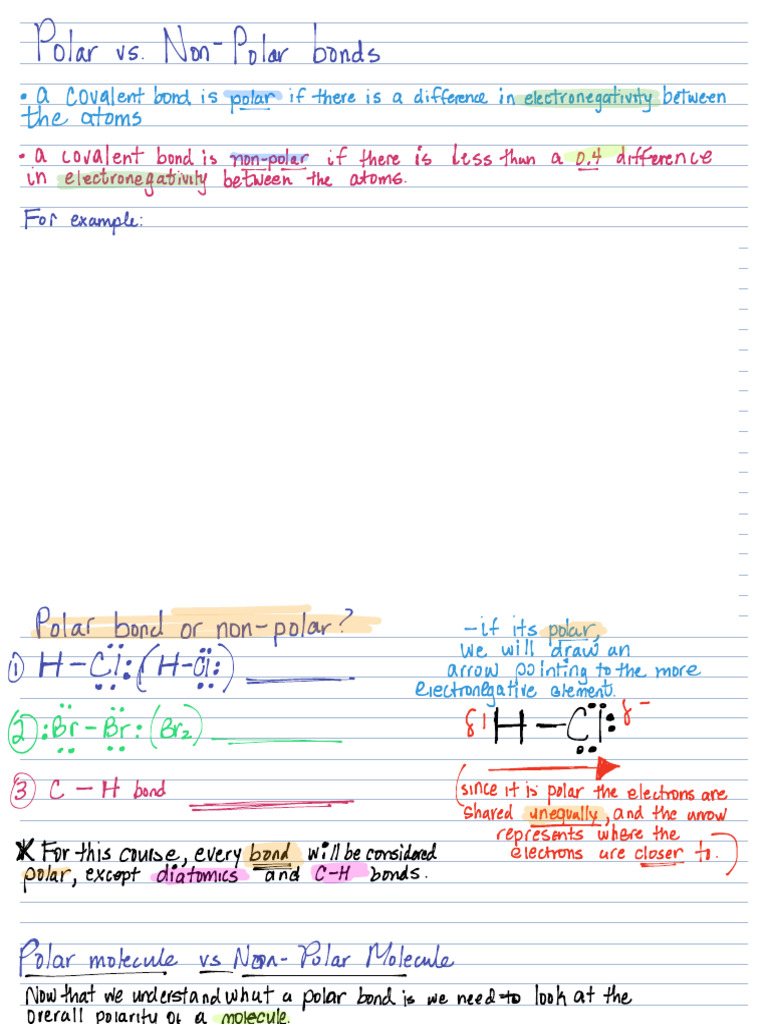 Polar vs. Non-Polar bonds
• a covalent bond is polar if there is a difference in electronegativity between
the atoms
• a covalent bond is non-polar if there is less than a 0.4 difference
in electronegativity between the atoms.
For example:
Polar bond or non-polar?
① H-Cl: (H-Cl:)
② :Br-Br: (Br₂)
③ C-H bond
* For this course, every bond will be considered
polar, except diatomics and C-H bonds.
-if its polar,
we will draw an
arrow pointing to the more
electronegative element.
δ+ H-Cl: δ-
(since it is polar the electrons are
shared unequally, and the arrow
represents where the
electrons are closer to.)
Polar molecule vs Non-Polar Molecule
Now that we understand what a polar bond is we need to look at the
overall polarity of a molecule.